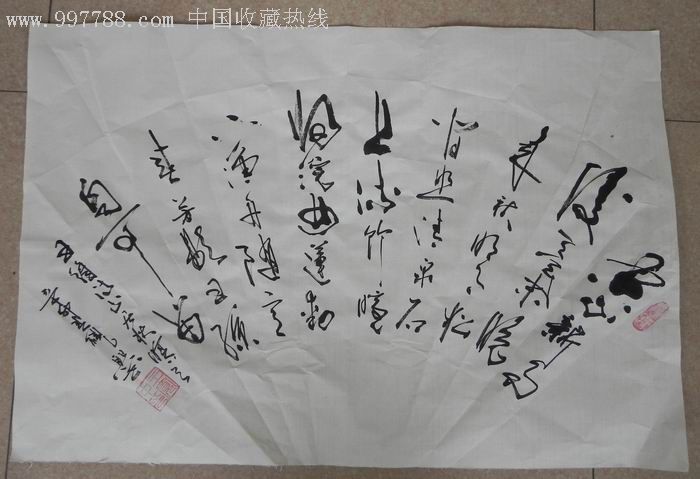 www.997788.com 中国收藏热线
空山新雨
后天气晚
来秋明月松间
照清泉石
上流竹喧
归浣女莲动
下渔舟随意
春芳歇王孙
自可留
王维诗山居秋暝